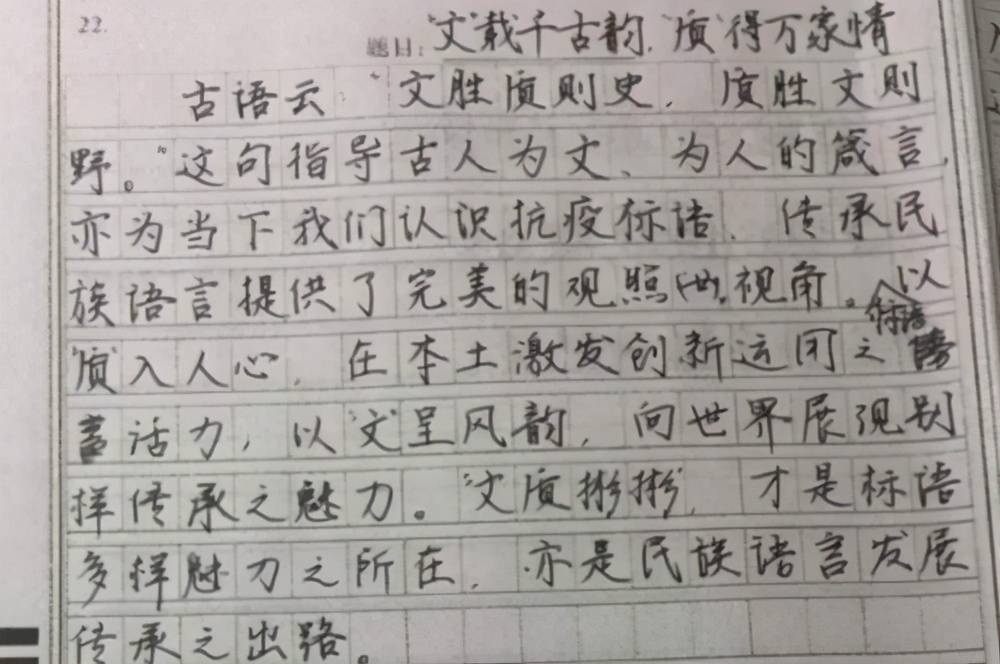 22.
题目："文"载千古韵,"质"得万家情
古语云"文胜质则史,质胜文则
野。"这句指导古人为文、为人的箴言,
亦为当下我们认识抗疫标语、传承民
族语言提供了完美的观照视角。以
标语
"质"入人心,在本土激发创新运用之
活力,以"文"呈风韵,向世界展现别
样传承之魅力。"文质彬彬",才是标语
多样魅力之所在,亦是民族语言发展
传承之出路。